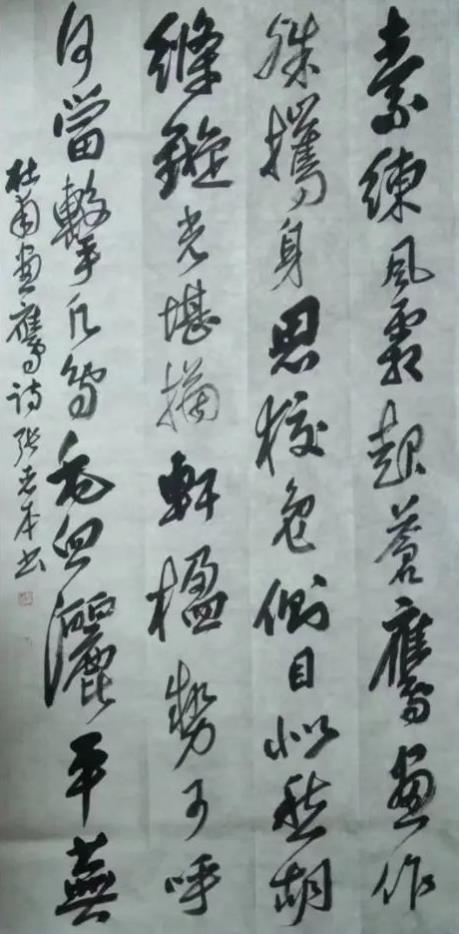 素練風霜起蒼鷹畫作
殊攜身思狡兔側目似愁胡
絛鏇光堪摘軒楹勢可呼
何當擊凡鳥毛血灑平蕪
杜甫畫鷹诗 张本书